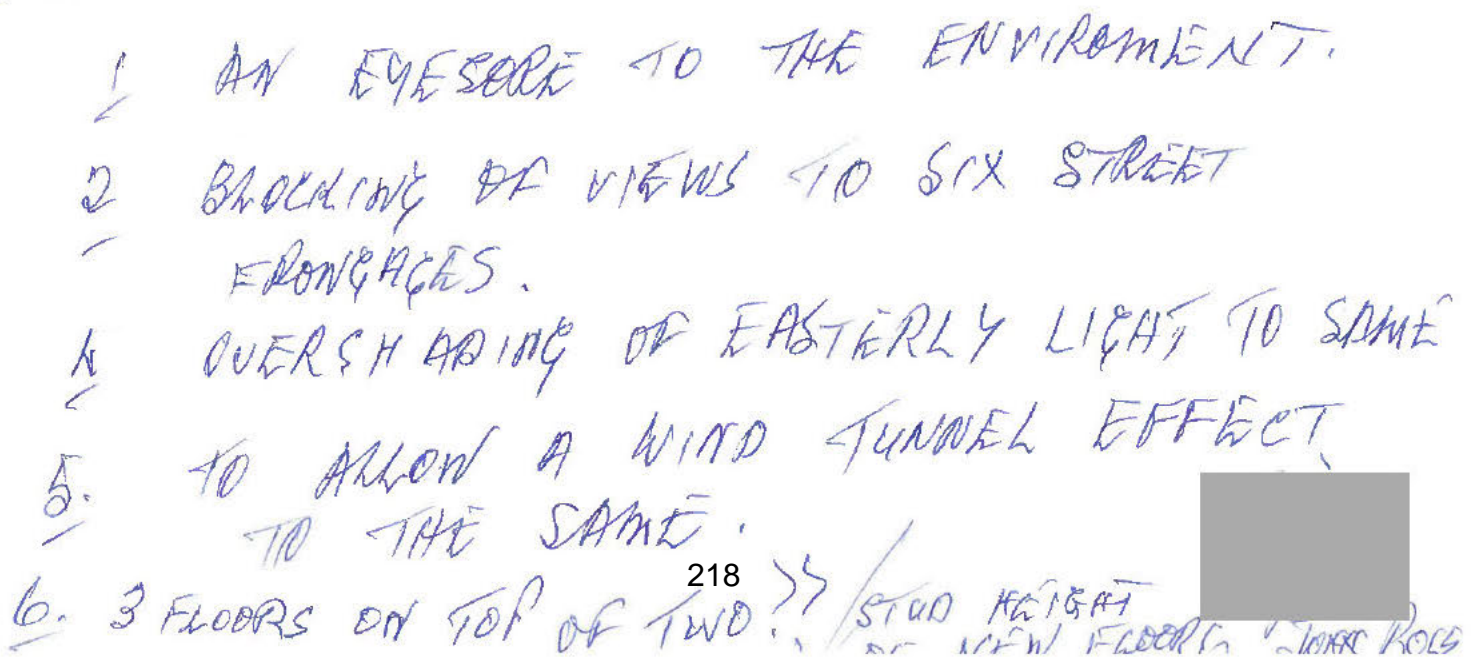 1 AN EYESORE TO THE ENVIROMENT.
2 BLOCKING OF VIEWS TO SIX STREET
FRONGAGES.
4 OVERSHADING OF EASTERLY LIGHT TO SAME
5. TO ALLOW A WIND TUNNEL EFFECT
TO THE SAME.
218
6. 3 FLOORS ON TOP OF TWO?? / STUD HEIGHT
OF NEW FLOORS